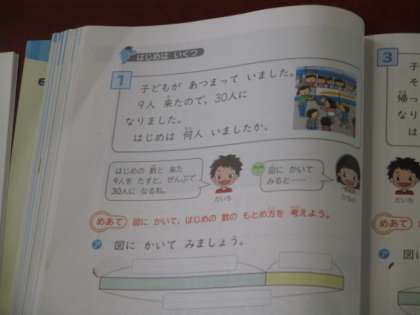 はじめは いくつ
1
子どもが あつまって いました。
9人 来たので、30人に
なりました。
はじめは 何人 いましたか。
はじめの 数と 来た
9人を たすと、ぜんぶで
30人に なるね。
だいち
図に かいて
みると……
めあて 図に かいて、はじめの 数の もとめ方を 考えよう。
ア 図に かいて みましょう。
3
子
そ
帰
だいち
めあて
ア
6